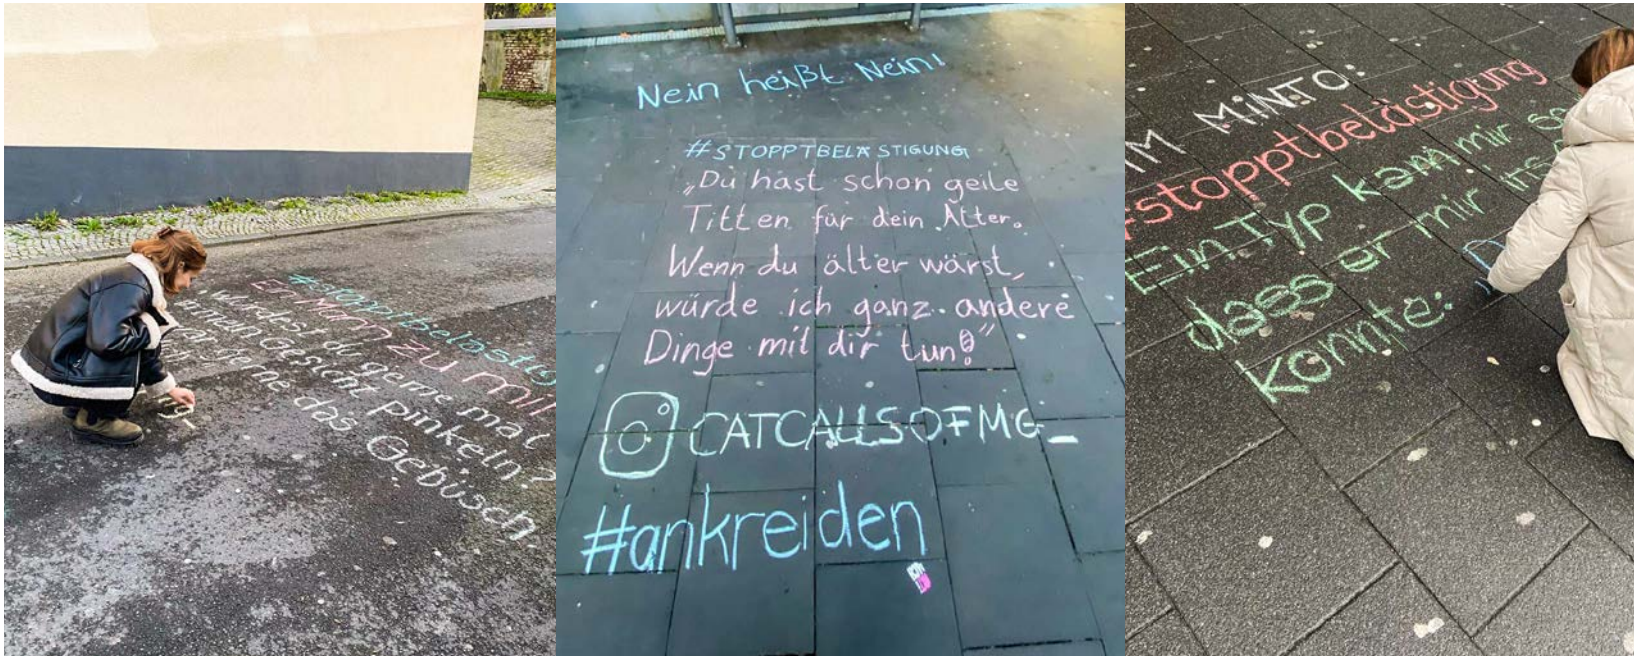 #stopptbelästig
Ein Mann zu mir
Würdest du gerne mal
Gesicht pinkeln?
gerne das Gebüsch
Nein heißt Nein!
#STOPPTBELÄSTIGUNG
„Du hast schon geile
Titten für dein Alter.
Wenn du älter wärst,
würde ich ganz andere
Dinge mit dir tun!"
CATCALLSOFMG_
#ankreiden
IM MINTO:
#stopptbelästigung
Ein Typ kam mir so
dass er mir ins
konnte: